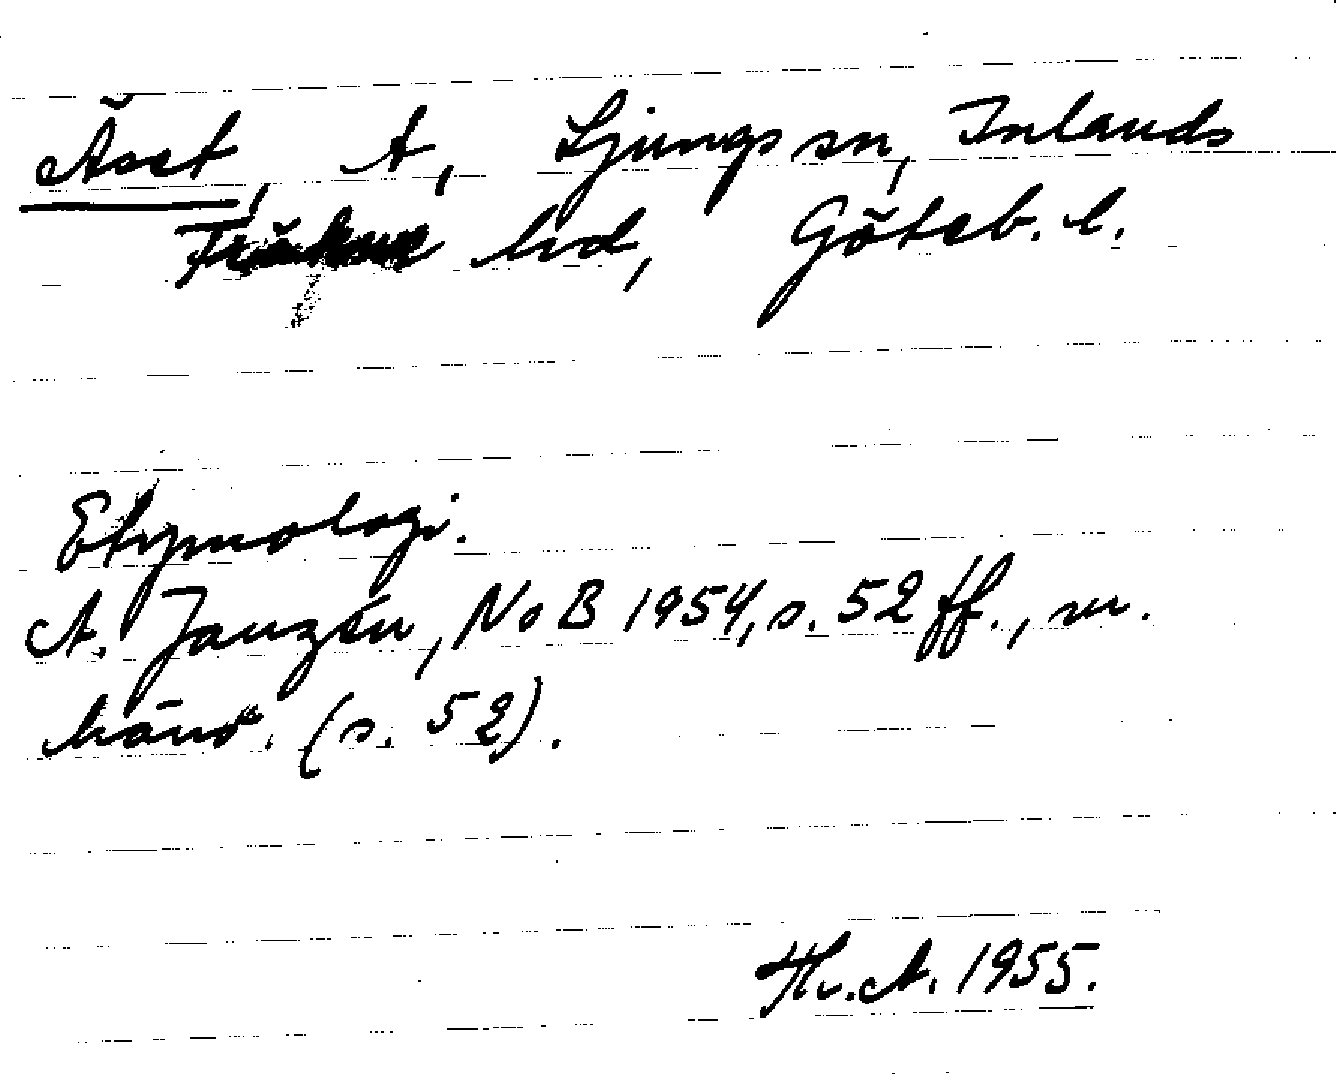 Äset, A, Ljungs sn, Inlands
Fräkne hd, Göteb. l.
Etymologi.
A. Janzén, NoB 1954, s. 52 ff., m.
hänv. (s. 52).
Th. A. 1955.